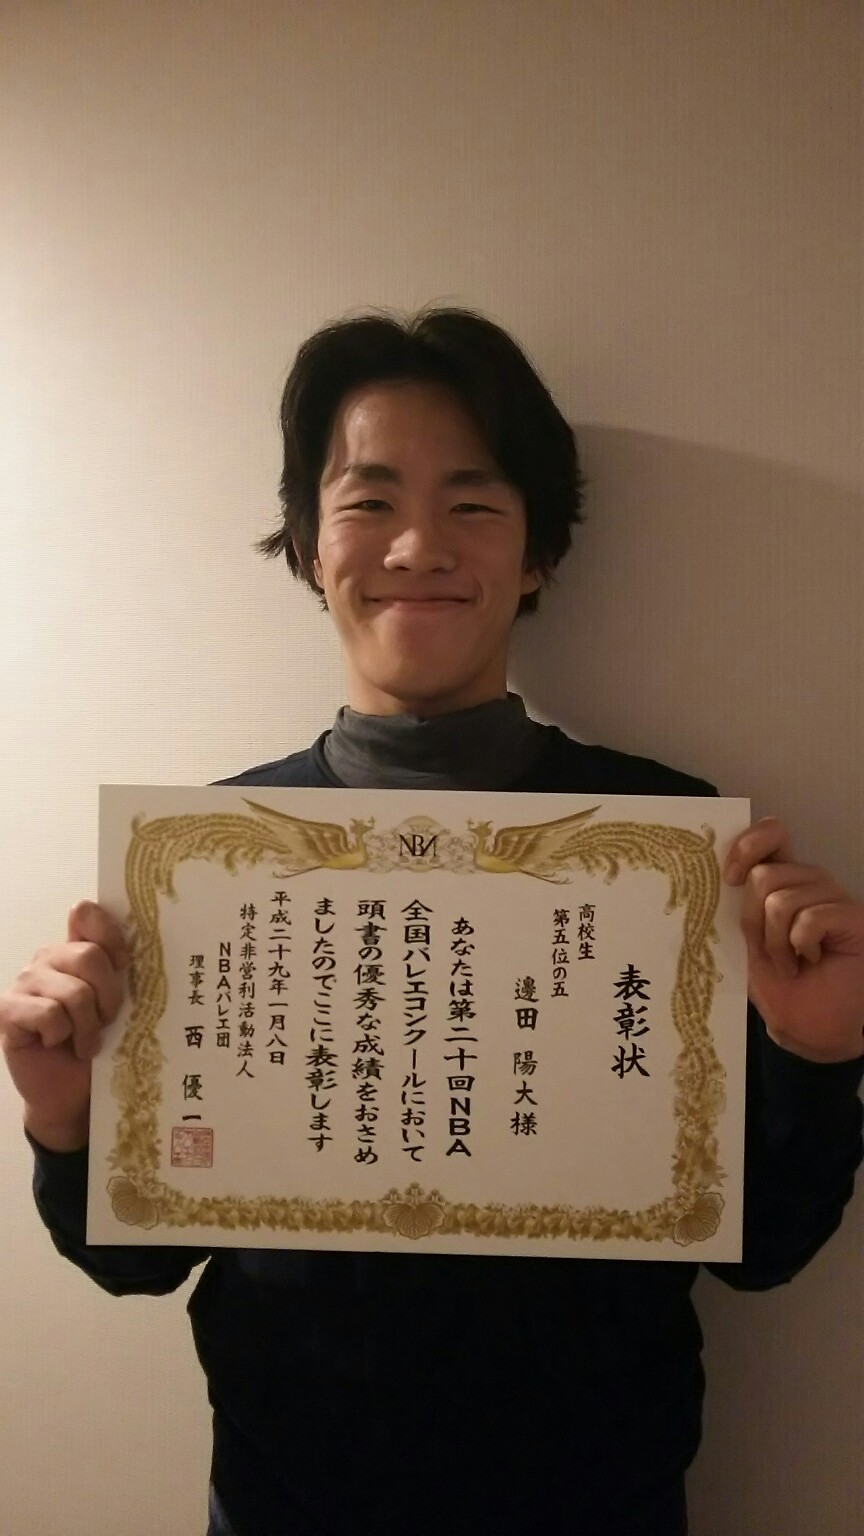 NBA
表彰状
高校生
第五位の五
邉田 陽大様
あなたは第二十回NBA
全国バレエコンクールにおいて
頭書の優秀な成績をおさめ
ましたのでここに表彰します
平成二十九年一月八日
特定非営利活動法人
NBAバレエ団
理事長 西 優一